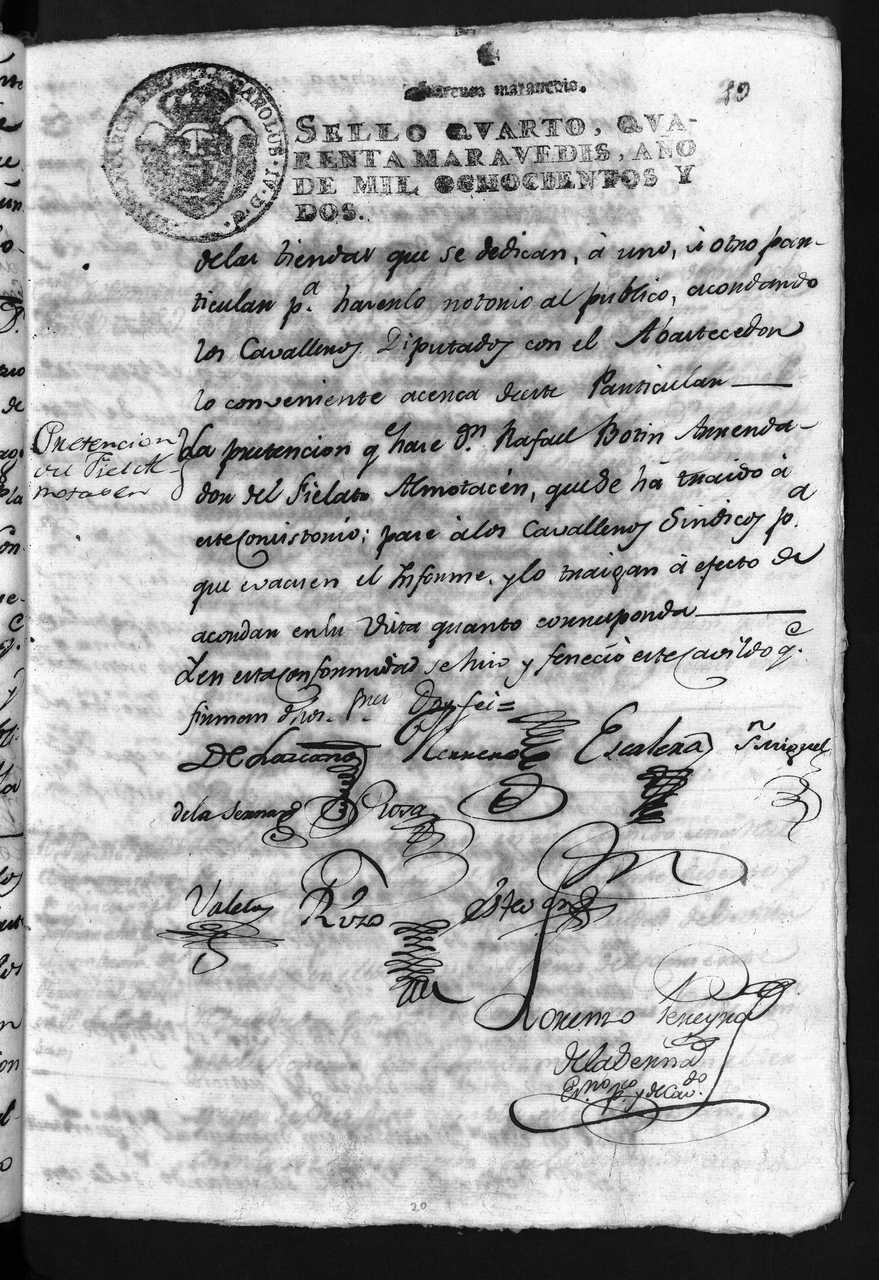 quarenta maravedis.
20
CAROLUS IV D G
SELLO QVARTO, QVA-
RENTA MARAVEDIS, AÑO
DE MIL OCHOCIENTOS Y
DOS.
delas tiendas que se dedican, à uno, ù otro par-
ticular pa. haverlo notorio al publico, acordando
los Cavalleros Diputados con el Abastecedor
lo conveniente acerca deeste Particular
Pretencion
del Fiel Al-
motacen
La pretencion qe. hace Dn. Rafael Botin Arrenda-
dor del Fielato Almotacén, que se há traido à
este Consistorio; pase à los Cavalleros Sindicos pa.
que evacuen el Informe, y lo traigan à efecto de
acordar en su Vista quanto corresponda
Y en esta conformidad se hizo y feneció este Cavildo qe.
firman dhos. Sres. Doy feè =
De Lazcano Herrero Escalera Sn. Miguel
de la Serna Rosa
Valela Rizo Esteo
Lorenzo Pereyra
de la Serna
Esno. pco. y de Cavdo.
20